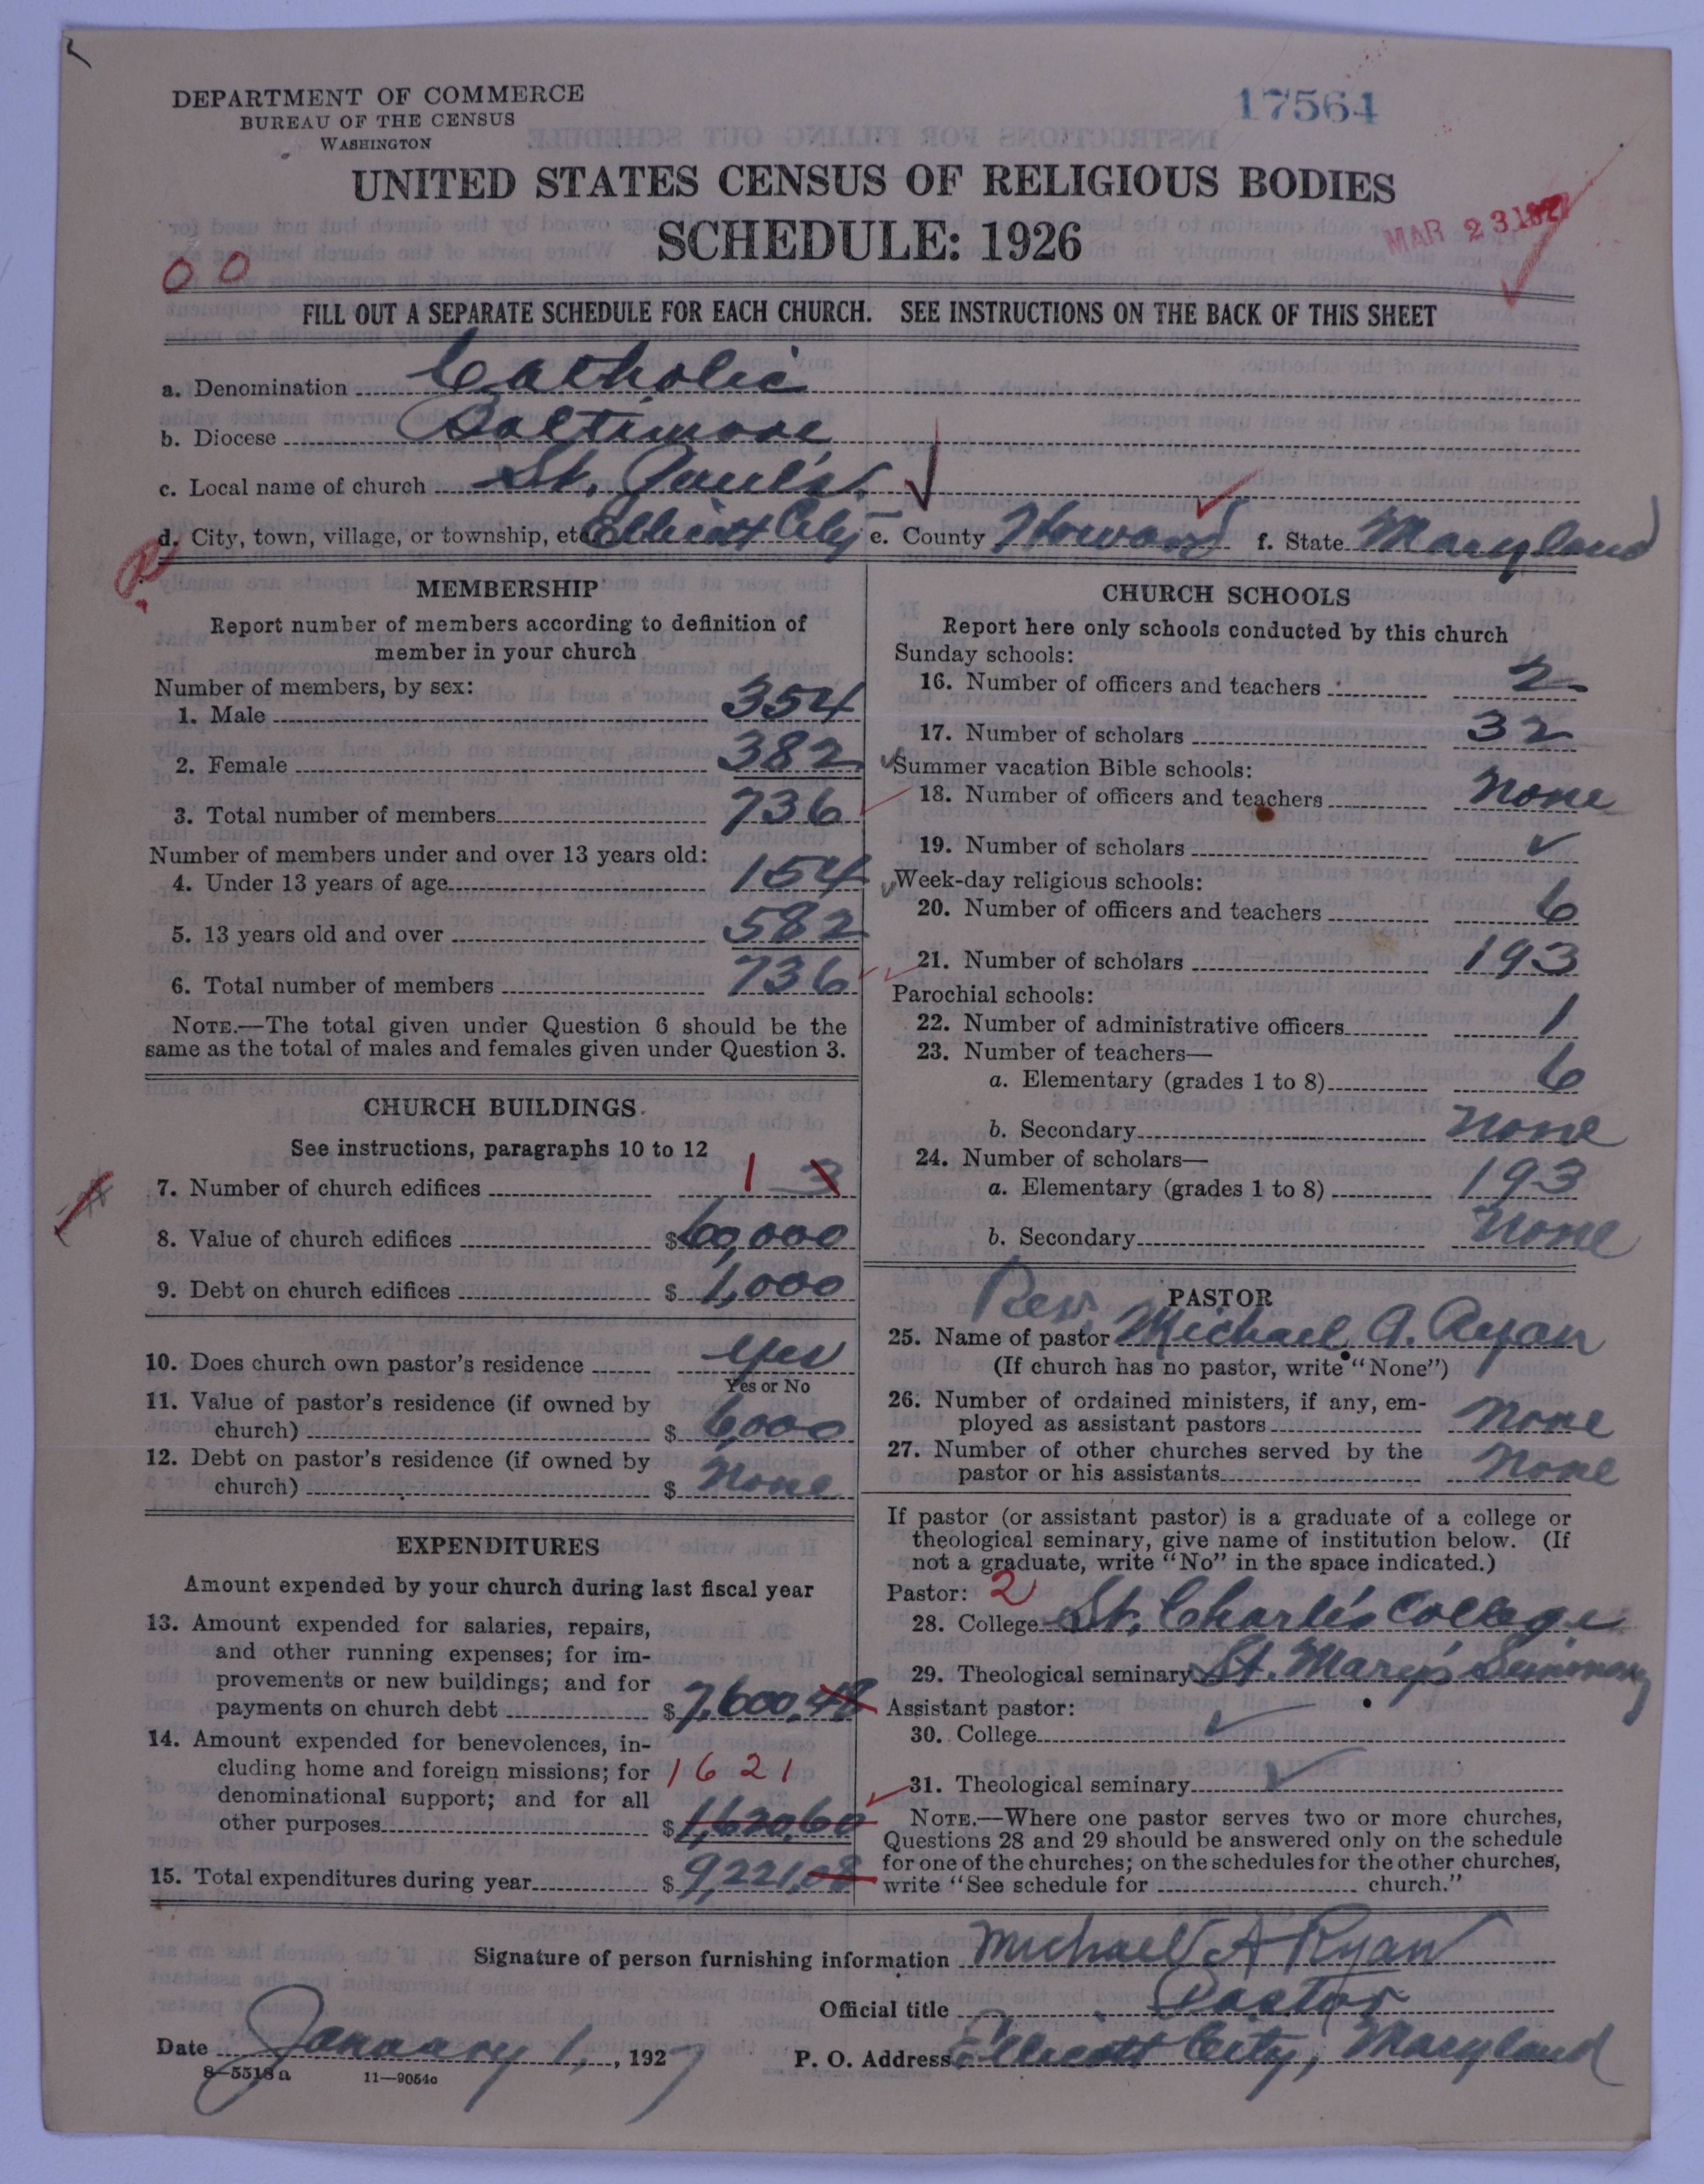 DEPARTMENT OF COMMERCE
BUREAU OF THE CENSUS
WASHINGTON
17564
UNITED STATES CENSUS OF RELIGIOUS BODIES
SCHEDULE: 1926
MAR 23 1927
0 0
FILL OUT A SEPARATE SCHEDULE FOR EACH CHURCH. SEE INSTRUCTIONS ON THE BACK OF THIS SHEET
a. Denomination Catholic
b. Diocese Baltimore
c. Local name of church St. Paul's.
d. City, town, village, or township, etc. Ellicott City e. County Howard f. State Maryland
MEMBERSHIP
Report number of members according to definition of
member in your church
Number of members, by sex:
1. Male 354
2. Female 382
3. Total number of members 736
Number of members under and over 13 years old:
4. Under 13 years of age 154
5. 13 years old and over 582
6. Total number of members 736
NOTE.—The total given under Question 6 should be the
same as the total of males and females given under Question 3.
CHURCH BUILDINGS
See instructions, paragraphs 10 to 12
7. Number of church edifices 1 3
8. Value of church edifices $60,000
9. Debt on church edifices $ 1,000
10. Does church own pastor's residence Yes
Yes or No
11. Value of pastor's residence (if owned by
church) $ 6,000
12. Debt on pastor's residence (if owned by
church) $ None
EXPENDITURES
Amount expended by your church during last fiscal year
13. Amount expended for salaries, repairs,
and other running expenses; for im-
provements or new buildings; and for
payments on church debt $7,600.48
14. Amount expended for benevolences, in-
cluding home and foreign missions; for 1621
denominational support; and for all
other purposes $1,620.60
15. Total expenditures during year $9,221.08
CHURCH SCHOOLS
Report here only schools conducted by this church
Sunday schools:
16. Number of officers and teachers 2
17. Number of scholars 32
Summer vacation Bible schools:
18. Number of officers and teachers None
19. Number of scholars
Week-day religious schools:
20. Number of officers and teachers 6
21. Number of scholars 193
Parochial schools:
22. Number of administrative officers 1
23. Number of teachers—
a. Elementary (grades 1 to 8) 6
b. Secondary None
24. Number of scholars—
a. Elementary (grades 1 to 8) 193
b. Secondary None
PASTOR
25. Name of pastor Rev. Michael A. Ryan
(If church has no pastor, write "None")
26. Number of ordained ministers, if any, em-
ployed as assistant pastors None
27. Number of other churches served by the
pastor or his assistants None
If pastor (or assistant pastor) is a graduate of a college or
theological seminary, give name of institution below. (If
not a graduate, write "No" in the space indicated.)
Pastor: 2
28. College St. Charles College
29. Theological seminary St. Mary's Seminary
Assistant pastor:
30. College
31. Theological seminary
NOTE.—Where one pastor serves two or more churches,
Questions 28 and 29 should be answered only on the schedule
for one of the churches; on the schedules for the other churches,
write "See schedule for church."
Signature of person furnishing information Michael A Ryan
Official title Pastor
Date January 1, 1927 P. O. Address Ellicott City, Maryland
8—5518a 11—9054c